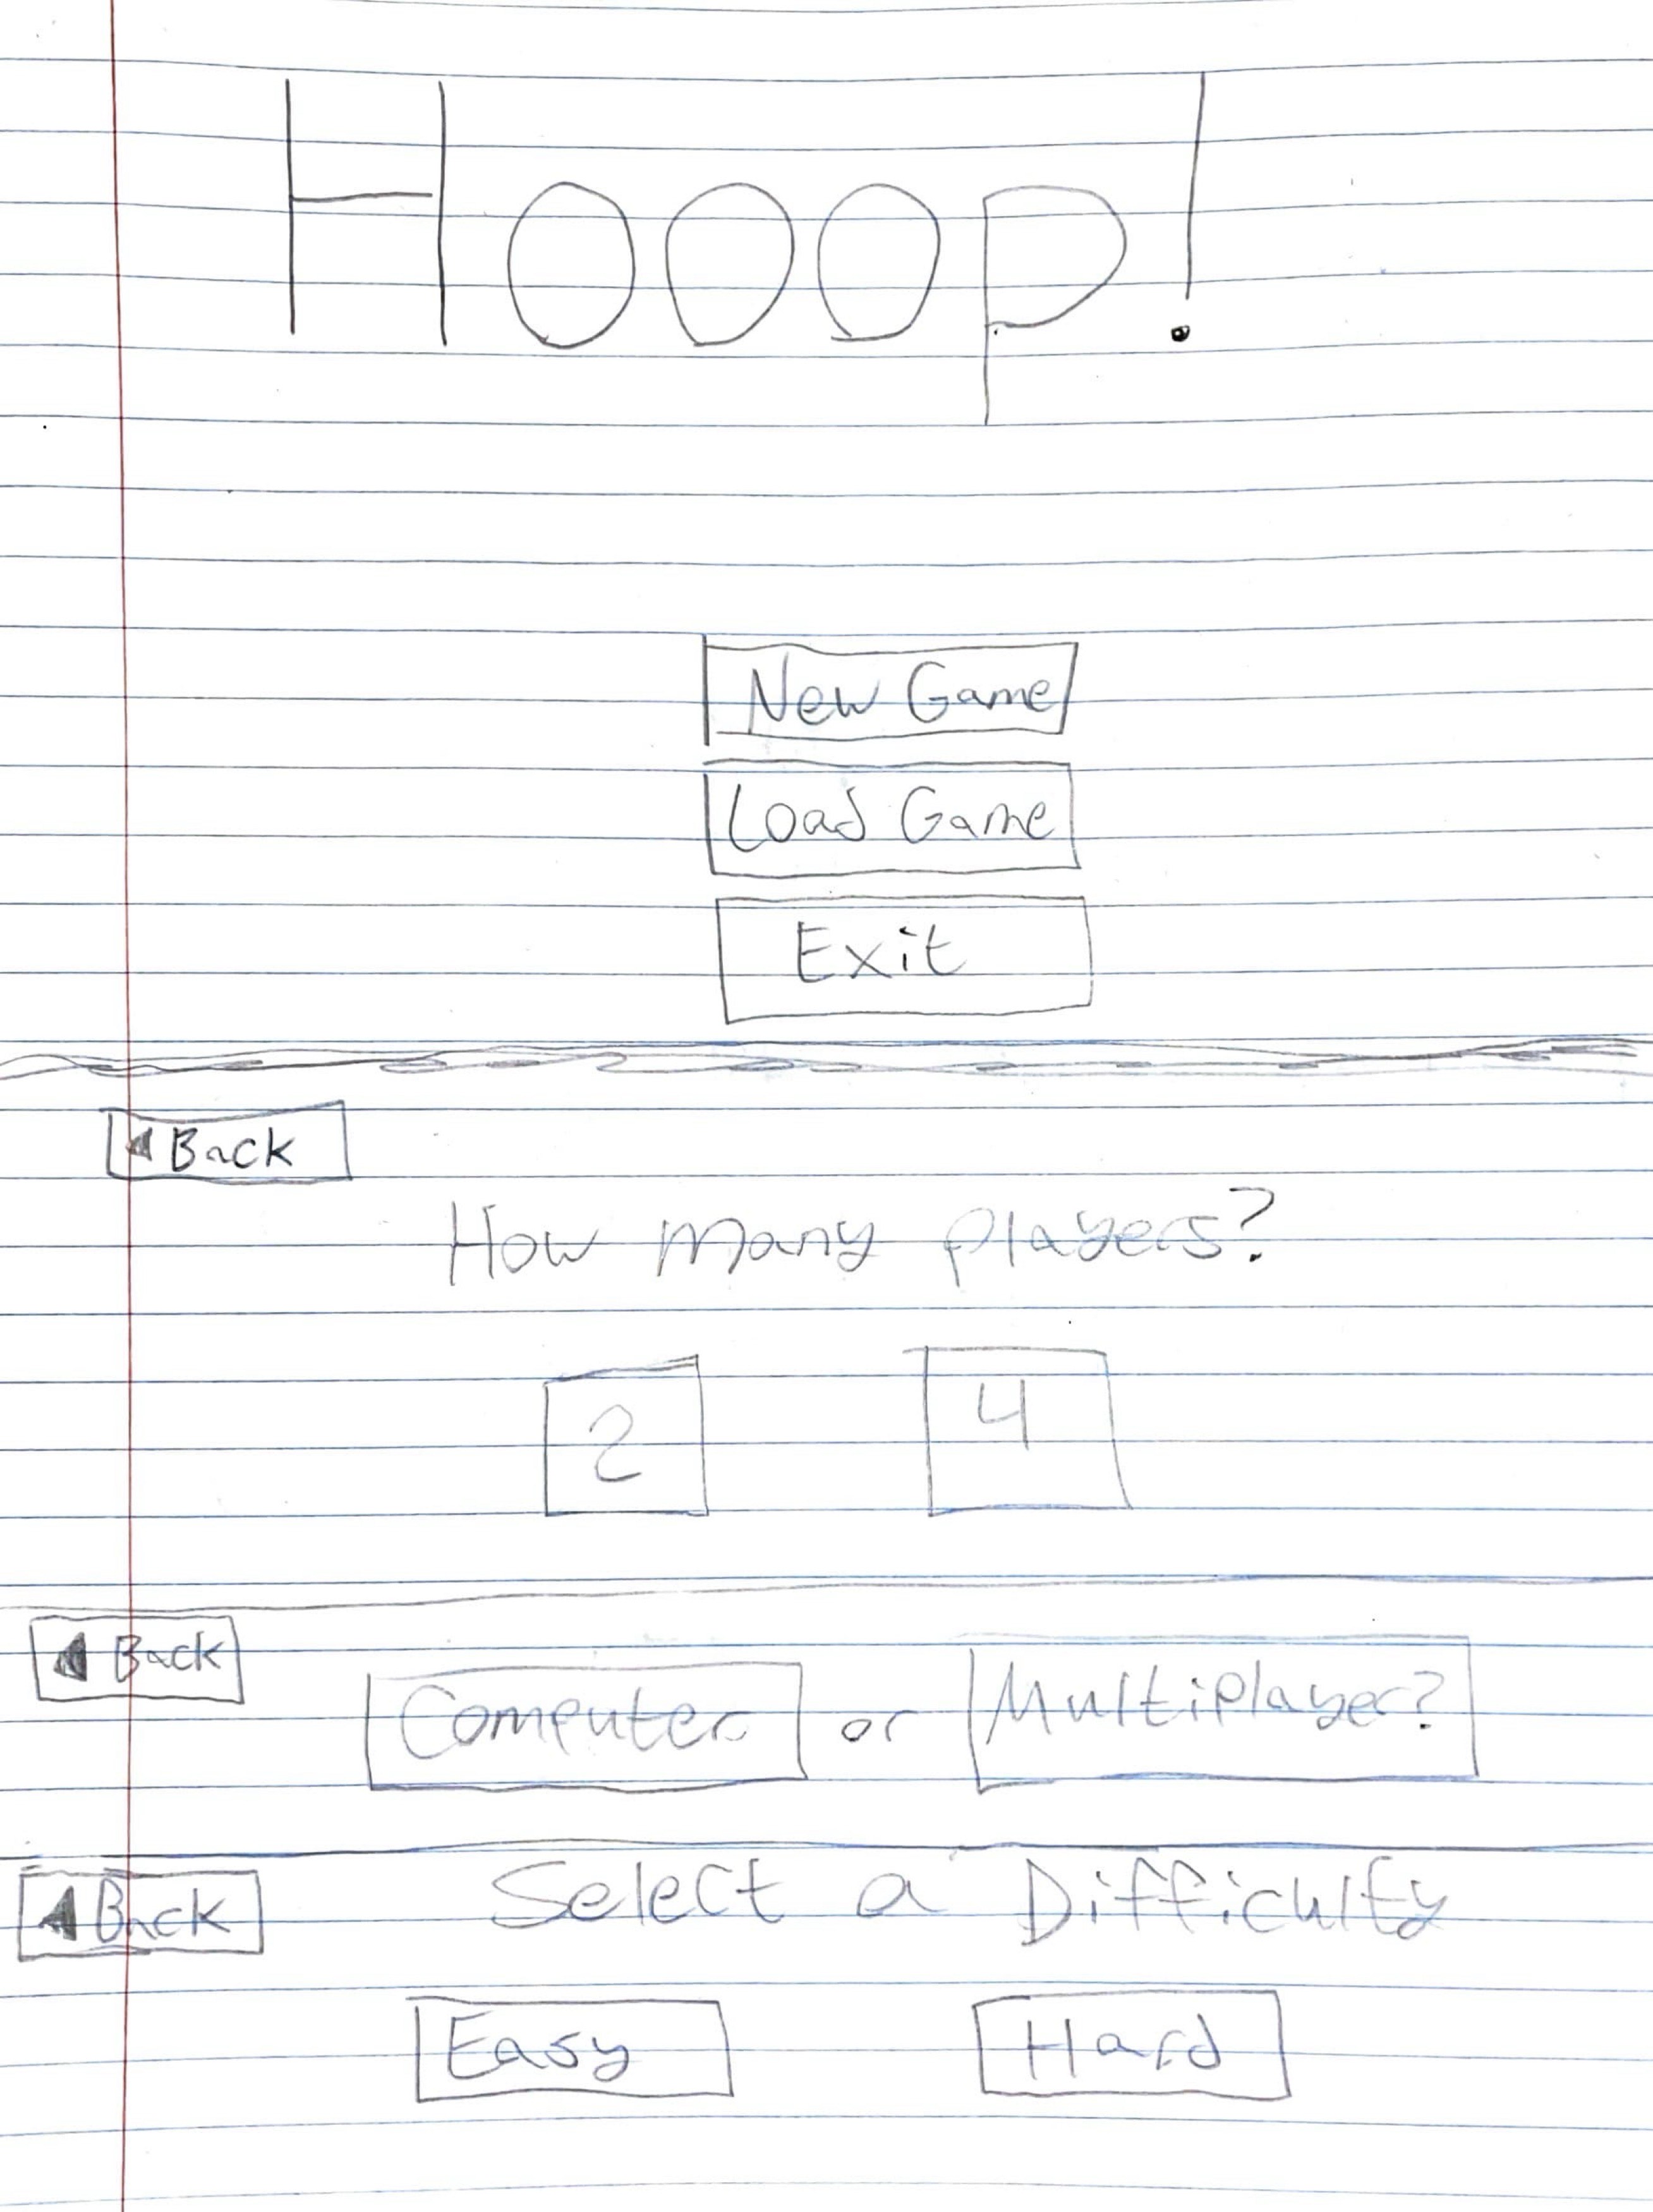 Hooop!
New Game
Load Game
Exit
Back
How many players?
2 4
Back
Computer or Multiplayer?
Back Select a Difficulty
Easy Hard